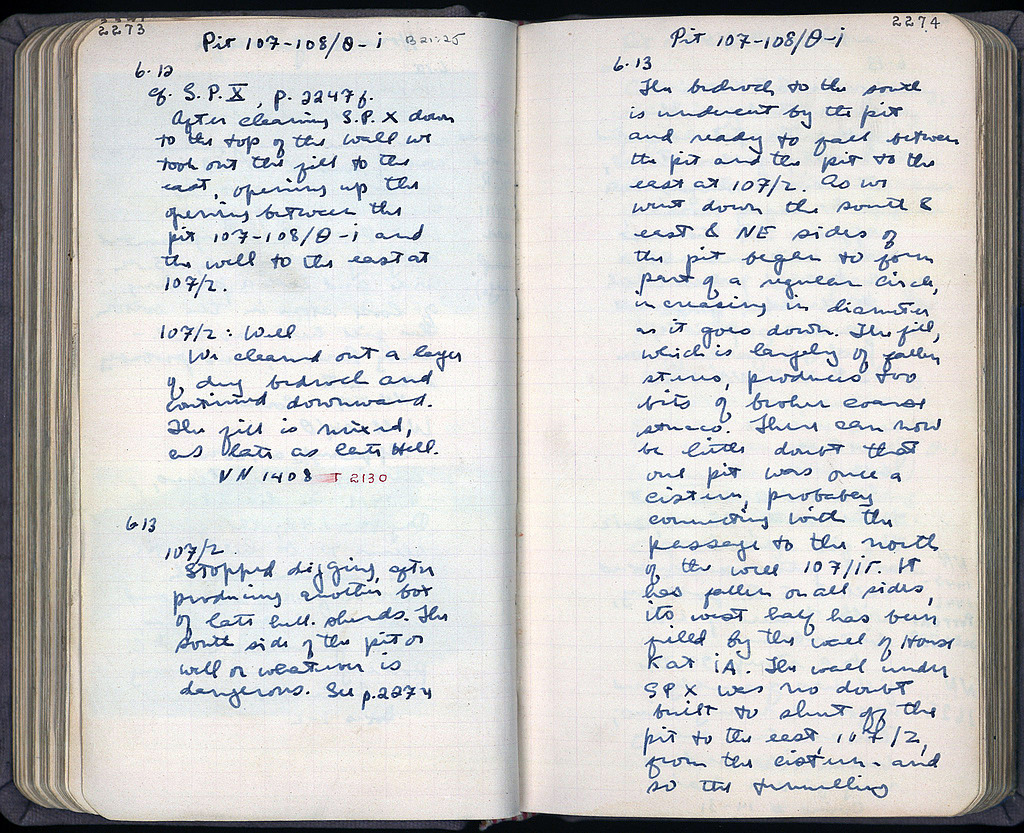 2273
Pit 107-108/Θ-i B21:25
6.12
cf. S.P. X, p. 2247 f.
After clearing S.P. X down
to the top of the wall we
took out the fill to the
east, opening up the
opening between the
pit 107-108/Θ-i and
the well to the east at
107/2.
107/2: Well
We cleaned out a layer
of dug bedrock and
continued downward.
The fill is mixed,
as late as late Hell.
NN 1408 T 2130
6.13
107/2
Stopped digging after
producing another box
of late hell. sherds. The
south side of the pit or
well or whatever is
dangerous. See p. 2274
2274
Pit 107-108/Θ-i
6.13
The bedrock to the south
is undercut by the pit
and ready to fall between
the pit and the pit to the
east at 107/2. As we
went down the south &
east & NE sides of
the pit began to form
part of a regular circle,
increasing in diameter
as it goes down. The fill,
which is largely of fallen
stones, produces too
bits of broken coarse
stucco. There can now
be little doubt that
our pit was once a
cistern, probably
connecting with the
passage to the north
of the well 107/ΙΓ. It
has fallen on all sides,
its west half has been
filled by the wall of House
K at ΙΑ. The wall under
SP X was no doubt
built to shut off the
pit to the east, 107/2,
from the cistern - and
so the tunnelling